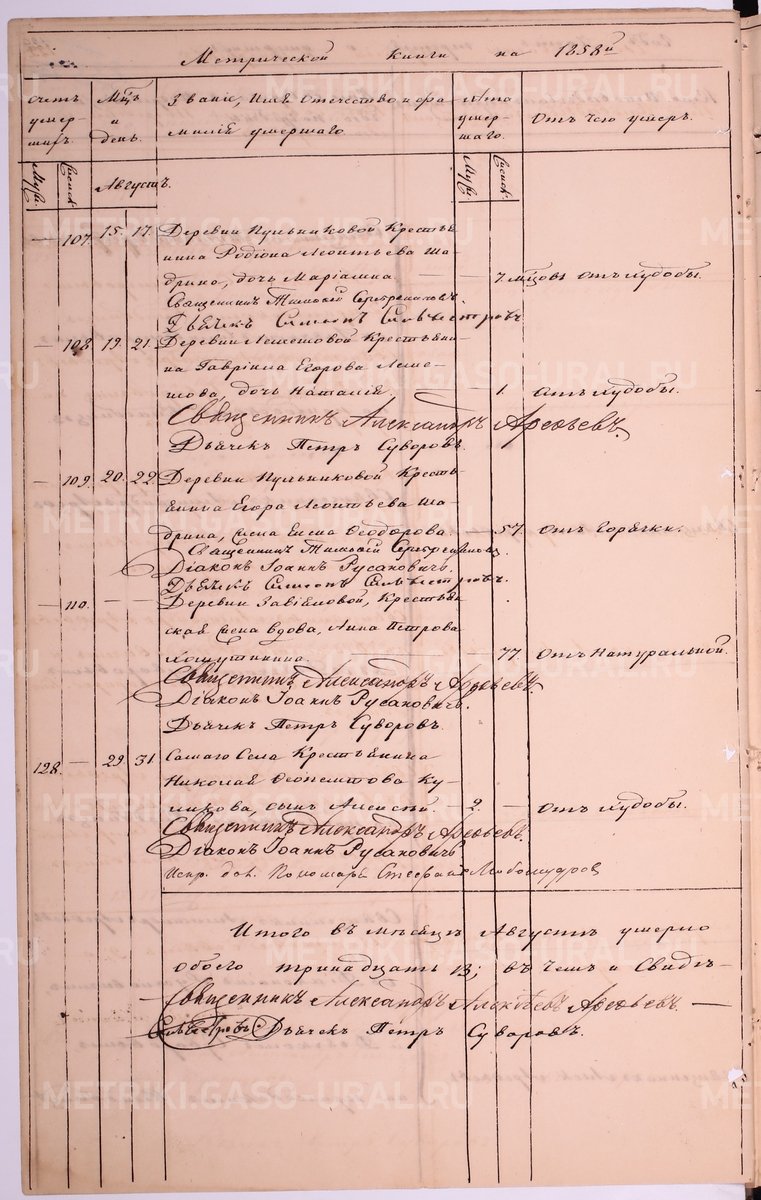 Метрической Книги на 1858й
Счетъ умершихъ.
Мц̃ъ и день.
Званіе, Имя Отечество и фамилія умершаго
Лѣта умершаго.
Отъ чего умеръ.
Муж. Женск.
Августъ.
Муж. Женск.
— 107. 15. 17. Деревни Пульниковой Крестья-
нина Родіона Леонтьева Ша-
дрина, дочь Маріамна. — 7. мцовъ Отъ худобы.
Священникъ Тимофей Серебренниковъ.
Дьячекъ Симеонъ Сильвестровъ.
— 108 19. 21. Деревни Лепетовой Крестьяни-
на Гавріила Егорова Лепе-
това, дочь Наталія. — 1. Отъ худобы.
Священникъ Александръ Арефьевъ.
Дьячекъ Петръ Суворовъ.
— 109. 20. 22. Деревни Пульниковой Кресть-
янина Егора Леонтьева Ша-
дрина, жена Елена Феодорова. 57. Отъ Горячки.
Священникъ Тимофей Серебренниковъ
Діаконъ Іоаннъ Русановичъ.
Дьячекъ Симеонъ Сильвестровъ.
— 110. — — Деревни Завьяловой, Крестьян-
ская жена вдова, Анна Петрова
77. Отъ Натуральной.
Священникъ Александръ Арефьевъ.
Діаконъ Іоаннъ Русановичъ.
Дьячекъ Петръ Суворовъ.
128. — 29. 31 Самаго Села Крестьянина
Николая Феопемптова Ку-
ликова, сынъ Алексѣй 2. — Отъ худобы.
Священникъ Александръ Арефьевъ.
Діаконъ Іоаннъ Русановичъ
Испр. дол. Пономаря Стефанъ Любомудровъ
Итого въ мѣсяцѣ Августѣ умерло
обоего тринадцать 13; въ чемъ и Свидѣ-
— Священникъ Александръ Алексѣевъ Арефьевъ. —
Дьячекъ Петръ Суворовъ.
METRIKI.GASO-URAL.RU